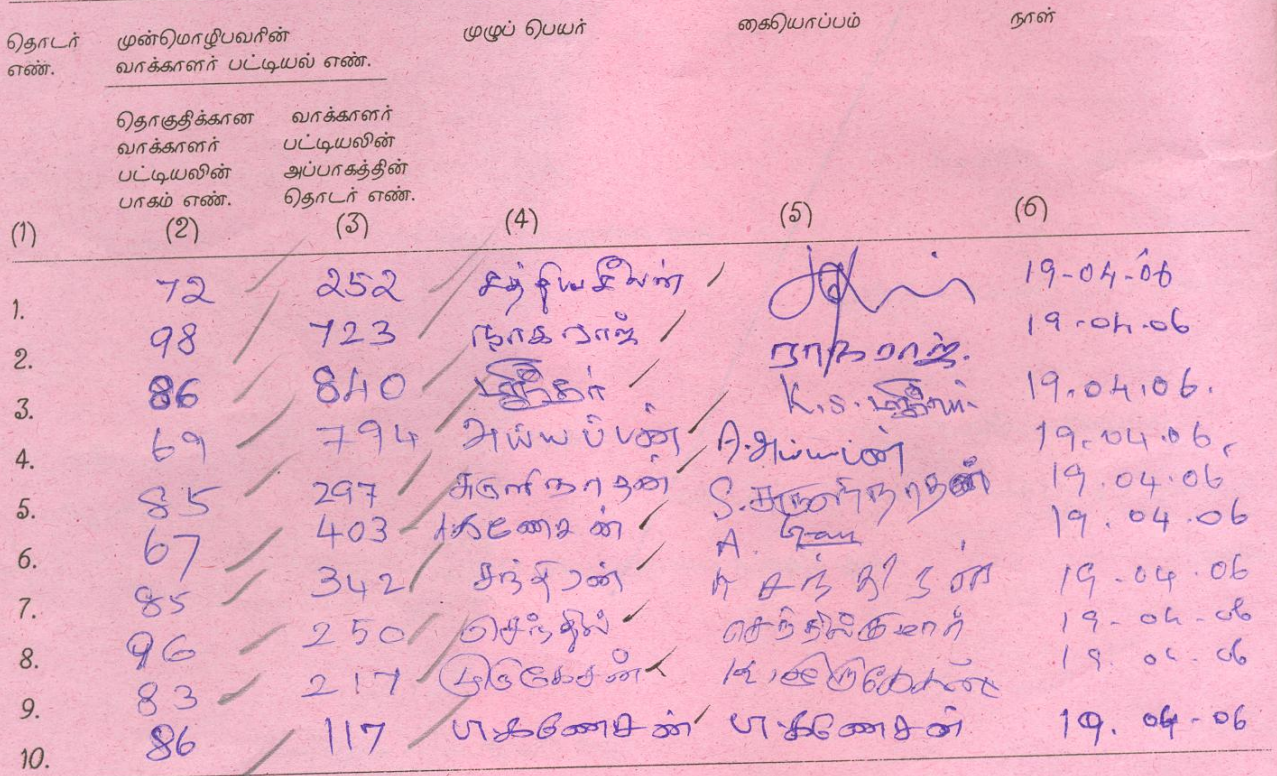 தொடர் எண். முன்மொழிபவரின் வாக்காளர் பட்டியல் எண். முழுப் பெயர் கையொப்பம் நாள்
தொகுதிக்கான வாக்காளர் பட்டியலின் பாகம் எண். வாக்காளர் பட்டியலின் அப்பாகத்தின் தொடர் எண்.
(1) (2) (3) (4) (5) (6)
1. 72 252 சத்தியசீலன் 19-04-06
2. 98 723 நாகராஜ் நாகராஜ். 19.04.06
3. 86 840 K.S. 19.04.06.
4. 69 794 அய்யப்பன் A.அய்யப்பன் 19.04.06.
5. 85 297 சுருளிநாதன் S.சுருளிநாதன் 19.04.06
6. 67 403 கணேசன் A. 19.04.06
7. 85 342 சந்திரன் சந்திரன் 19.04.06
8. 96 250 செந்தில் செந்தில்குமார் 19-04-06
9. 83 217 முருகேசன் K.முருகேசன் 19.04.06
10. 86 117 பா.கணேசன் பா.கணேசன் 19.04-06